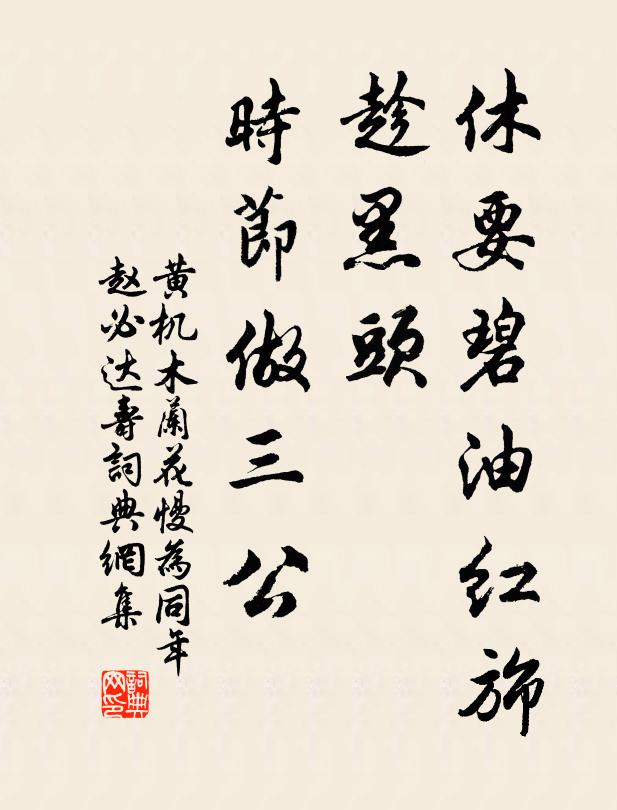 休要碧油红旆
趁黑頭
時節做三公
黄机木蘭花慢為同年
赵必达寿詞典網集
詞典
网印